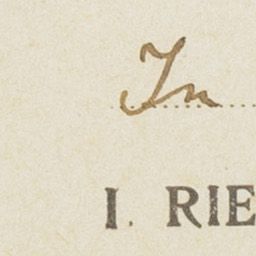 In
I. RIE